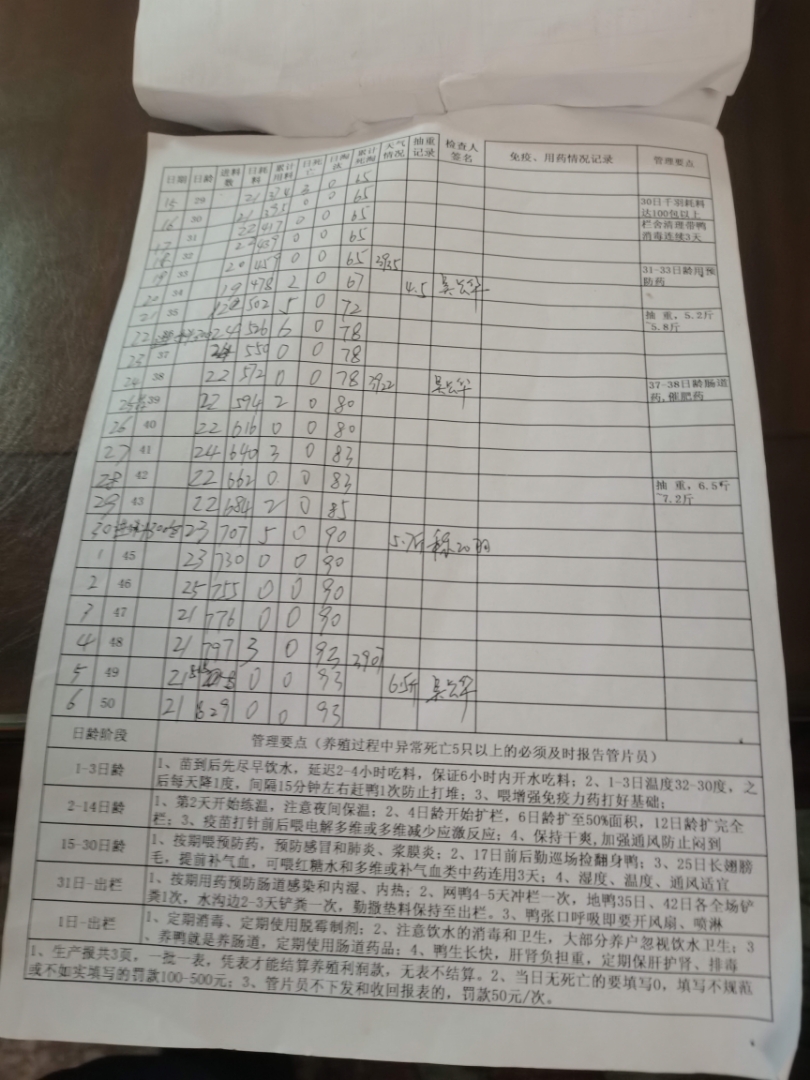 日期 日龄 进料数 日耗料 累计用料 日死亡 日淘汰 累计死淘 天气情况 抽重记录 检查人签名 免疫、用药情况记录 管理要点
15 29 21 374 3 0 65
16 30 21 395 0 0 65 30日千羽耗料达100包以上
17 31 22 417 0 0 65 栏舍清理带鸭消毒连续3天
18 32 22 439 0 0 65
19 33 20 459 0 0 65 3935 31-33日龄用预防药
20 34 19 478 2 0 67 4.5
21 35 502 5 0 72 抽 重，5.2斤~5.8斤
22 24 526 6 0 78
23 37 24 550 0 0 78
24 38 22 572 0 0 78 3922 37-38日龄肠道药,催肥药
39 22 594 2 0 80
26 40 22 616 0 0 80
27 41 24 640 3 0 83
28 42 22 662 0 0 83 抽 重，6.5斤~7.2斤
29 43 22 684 2 0 85
30 23 707 5 0 90 20羽
1 45 23 730 0 0 90
2 46 25 755 0 0 90
3 47 21 776 0 0 90
4 48 21 797 3 0 93 3907
5 49 21 0 0 93 6.5斤
6 50 21 829 0 0 93
日龄阶段 管理要点（养殖过程中异常死亡5只以上的必须及时报告管片员）
1-3日龄 1、苗到后先尽早饮水，延迟2-4小时吃料，保证6小时内开水吃料；2、1-3日温度32-30度，之
后每天降1度，间隔15分钟左右赶鸭1次防止打堆；3、喂增强免疫力药打好基础；
2-14日龄 1、第2天开始练温，注意夜间保温；2、4日龄开始扩栏，6日龄扩至50%面积，12日龄扩完全
栏；3、疫苗打针前后喂电解多维或多维减少应激反应；4、保持干爽,加强通风防止闷到
15-30日龄 1、按期喂预防药，预防感冒和肺炎、浆膜炎；2、17日前后勤巡场捡翻身鸭；3、25日长翅膀
毛，提前补气血，可喂红糖水和多维或补气血类中药连用3天；4、湿度、温度、通风适宜
31日-出栏 1、按期用药预防肠道感染和内湿、内热；2、网鸭4-5天冲栏一次，地鸭35日、42日各全场铲
粪1次，水沟边2-3天铲粪一次，勤撒垫料保持至出栏。3、鸭张口呼吸即要开风扇、喷淋
1日-出栏 1、定期消毒、定期使用脱霉制剂；2、注意饮水的消毒和卫生，大部分养户忽视饮水卫生；3
、养鸭就是养肠道，定期使用肠道药品；4、鸭生长快，肝肾负担重，定期保肝护肾、排毒
1、生产报共3页，一批一表，凭表才能结算养殖利润款，无表不结算。2、当日无死亡的要填写0，填写不规范
或不如实填写的罚款100-500元；3、管片员不下发和收回报表的，罚款50元/次。